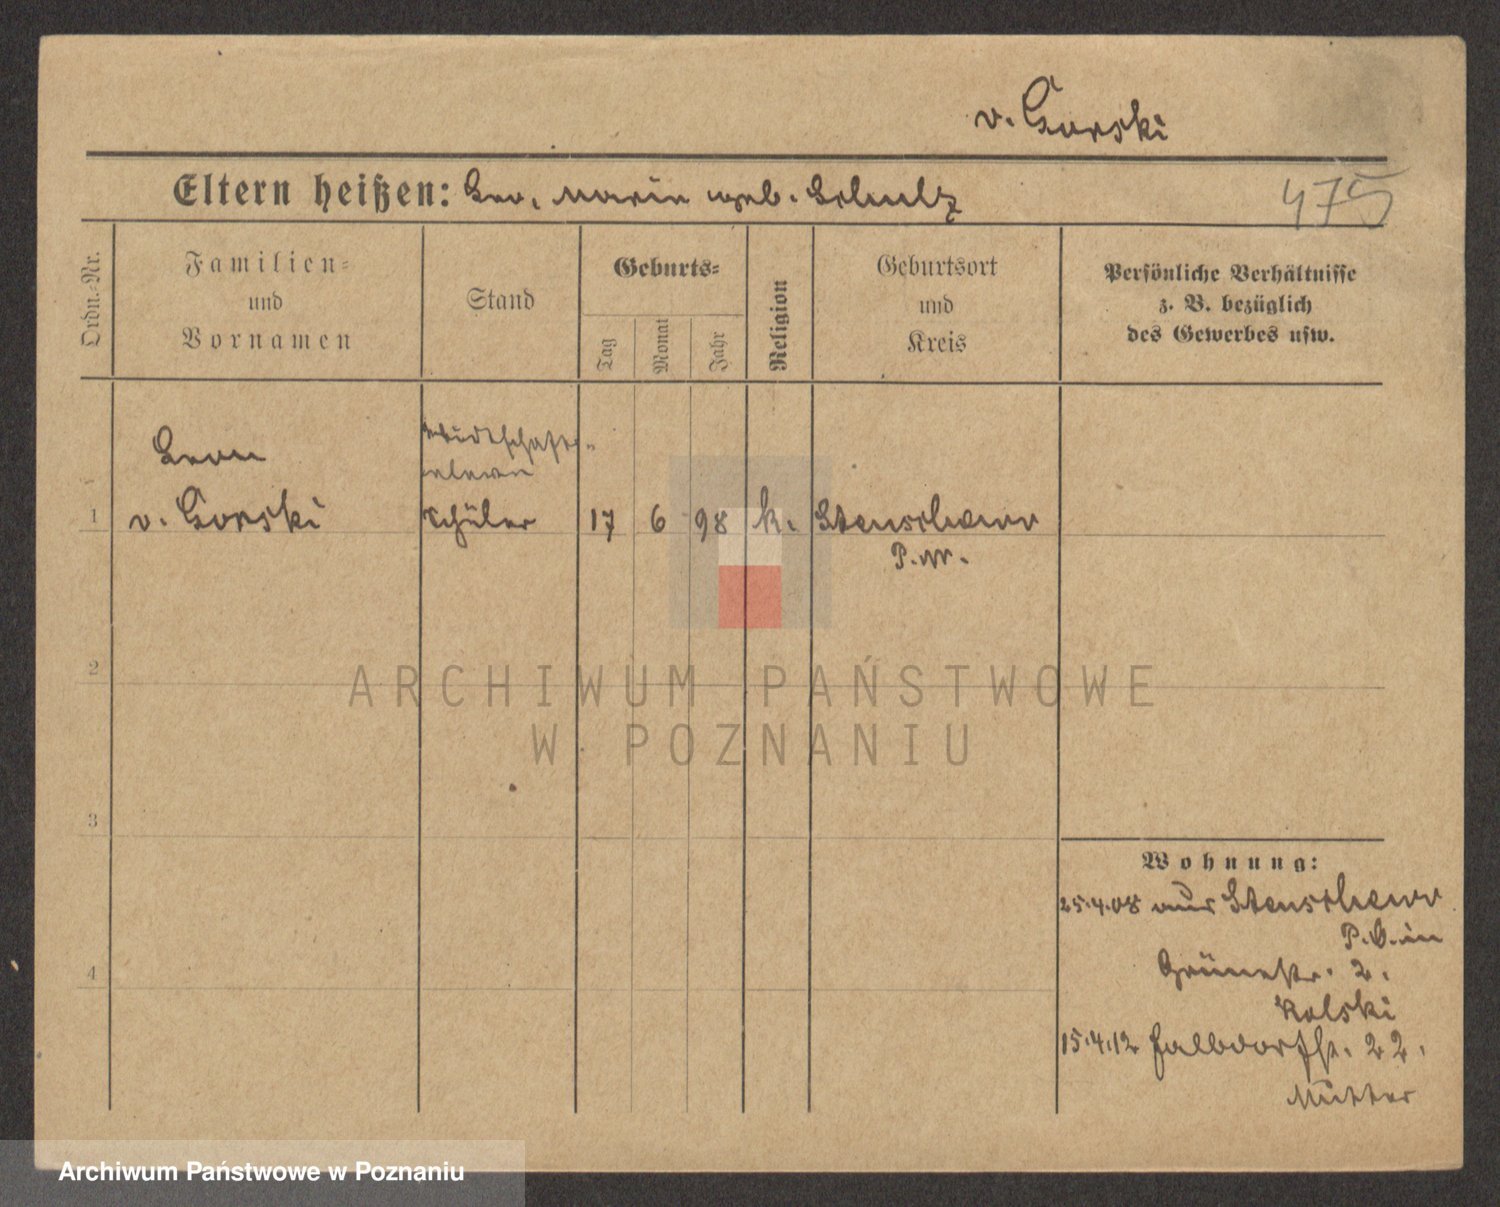 v. Gorski
Eltern heißen: Leo, Marie geb. Schulz
475
Ordn.-Nr.
Familien-
und
Vornamen
Stand
Geburts-
Tag
Monat
Jahr
Religion
Geburtsort
und
Kreis
Persönliche Verhältnisse
z. B. bezüglich
des Gewerbes usw.
Wirtschafts-
eleve
Leon
1 v. Gorski Schüler 17 6 98 k. Stenschewo
P.W.
2
3
4
Wohnung:
25.4.08 aus Stenschewo
P.W. in
Grünestr. 2.
Kolski
15.4.12 Halbdorfstr. 22.
Mutter
ARCHIWUM PAŃSTWOWE
W POZNANIU
Archiwum Państwowe w Poznaniu